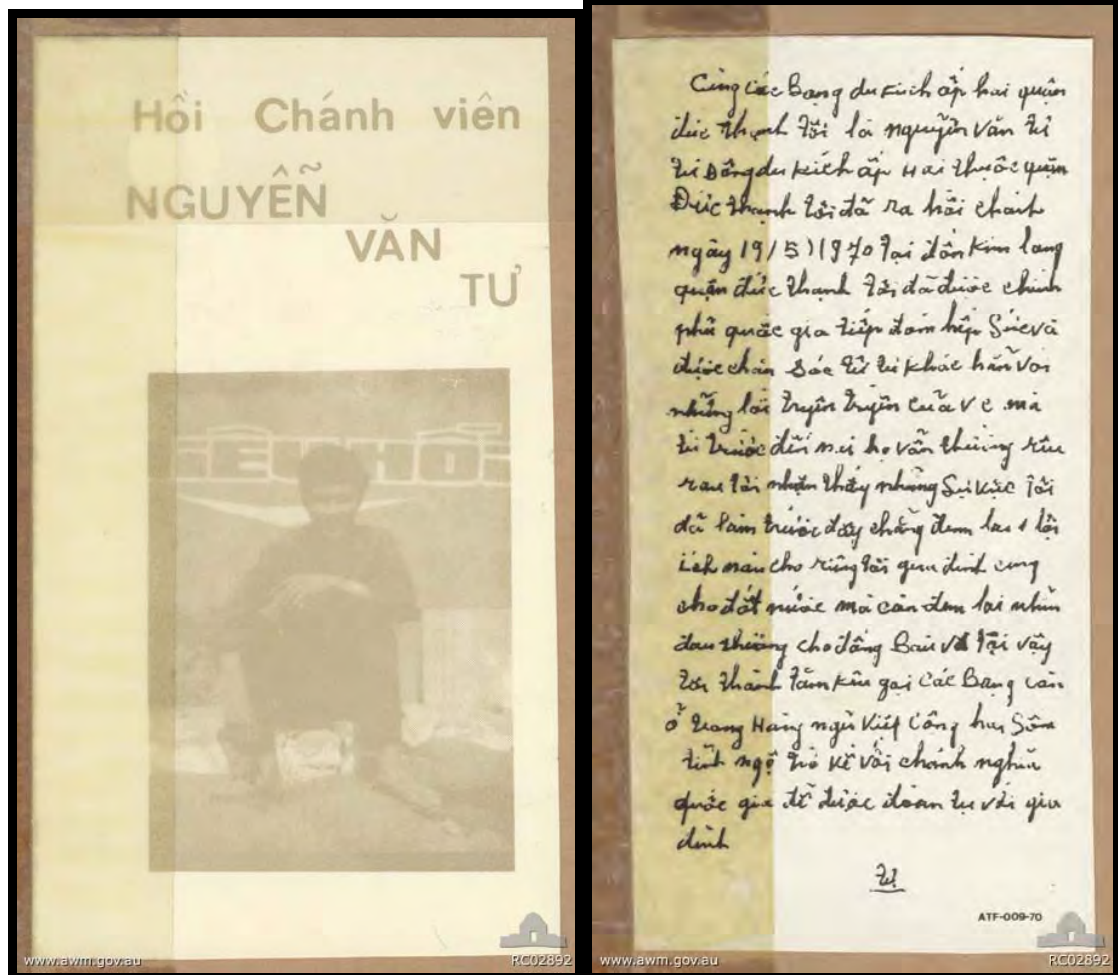 Hồi Chánh viên
NGUYỄN
VĂN
TƯ
ÊU HỒI
www.awm.gov.au
RC02892
Cùng các Bạng du kích ấp hai quận
đức thạnh tôi là nguyễn văn tư
du kích ấp Hai thuộc quận
Đức thạnh tôi đã ra hồi chánh
ngày 19/5/1970 tại đồn Kim long
quận đức thạnh tôi đã được chính
phủ quốc gia tiếp đón và
được chăn sóc tử tế khác hẳn với
những lời truyền của v c mà
từ trước đến nai họ vẫn thường rêu
rau tôi nhận thấy những tôi
đã làm trước đây chẳng đem lại lợi
ích nào cho riêng tôi gia đình cung
cho đất nước mà còn đem lại
đau thương cho đồng bào vậy
tôi thành tâm kêu gọi Các Bạng còn
ở trong Hàng ngũ Việt Cộng hãy Sớm
tỉnh ngộ trở về với chánh nghĩa
quốc gia để được đoàn tụ với gia
đình
Tư
ATF-009-70
www.awm.gov.au
RC02892